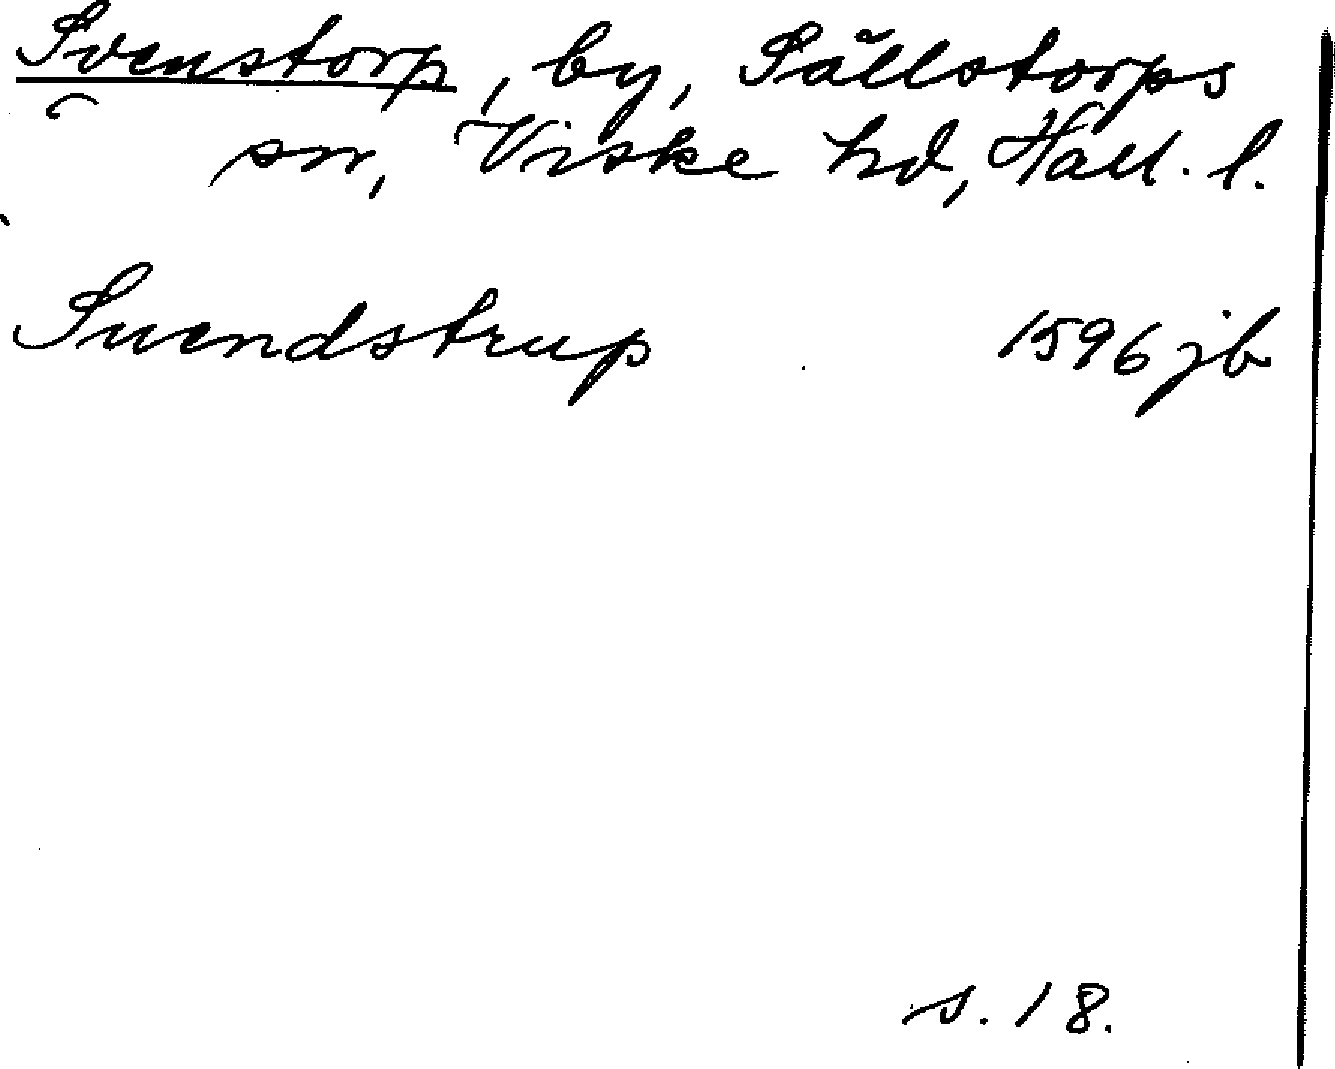 Svenstorp, by, Sällstorps
sn, Viske hd, Hall. l.
Suendstrup 1596 jb
s. 18.